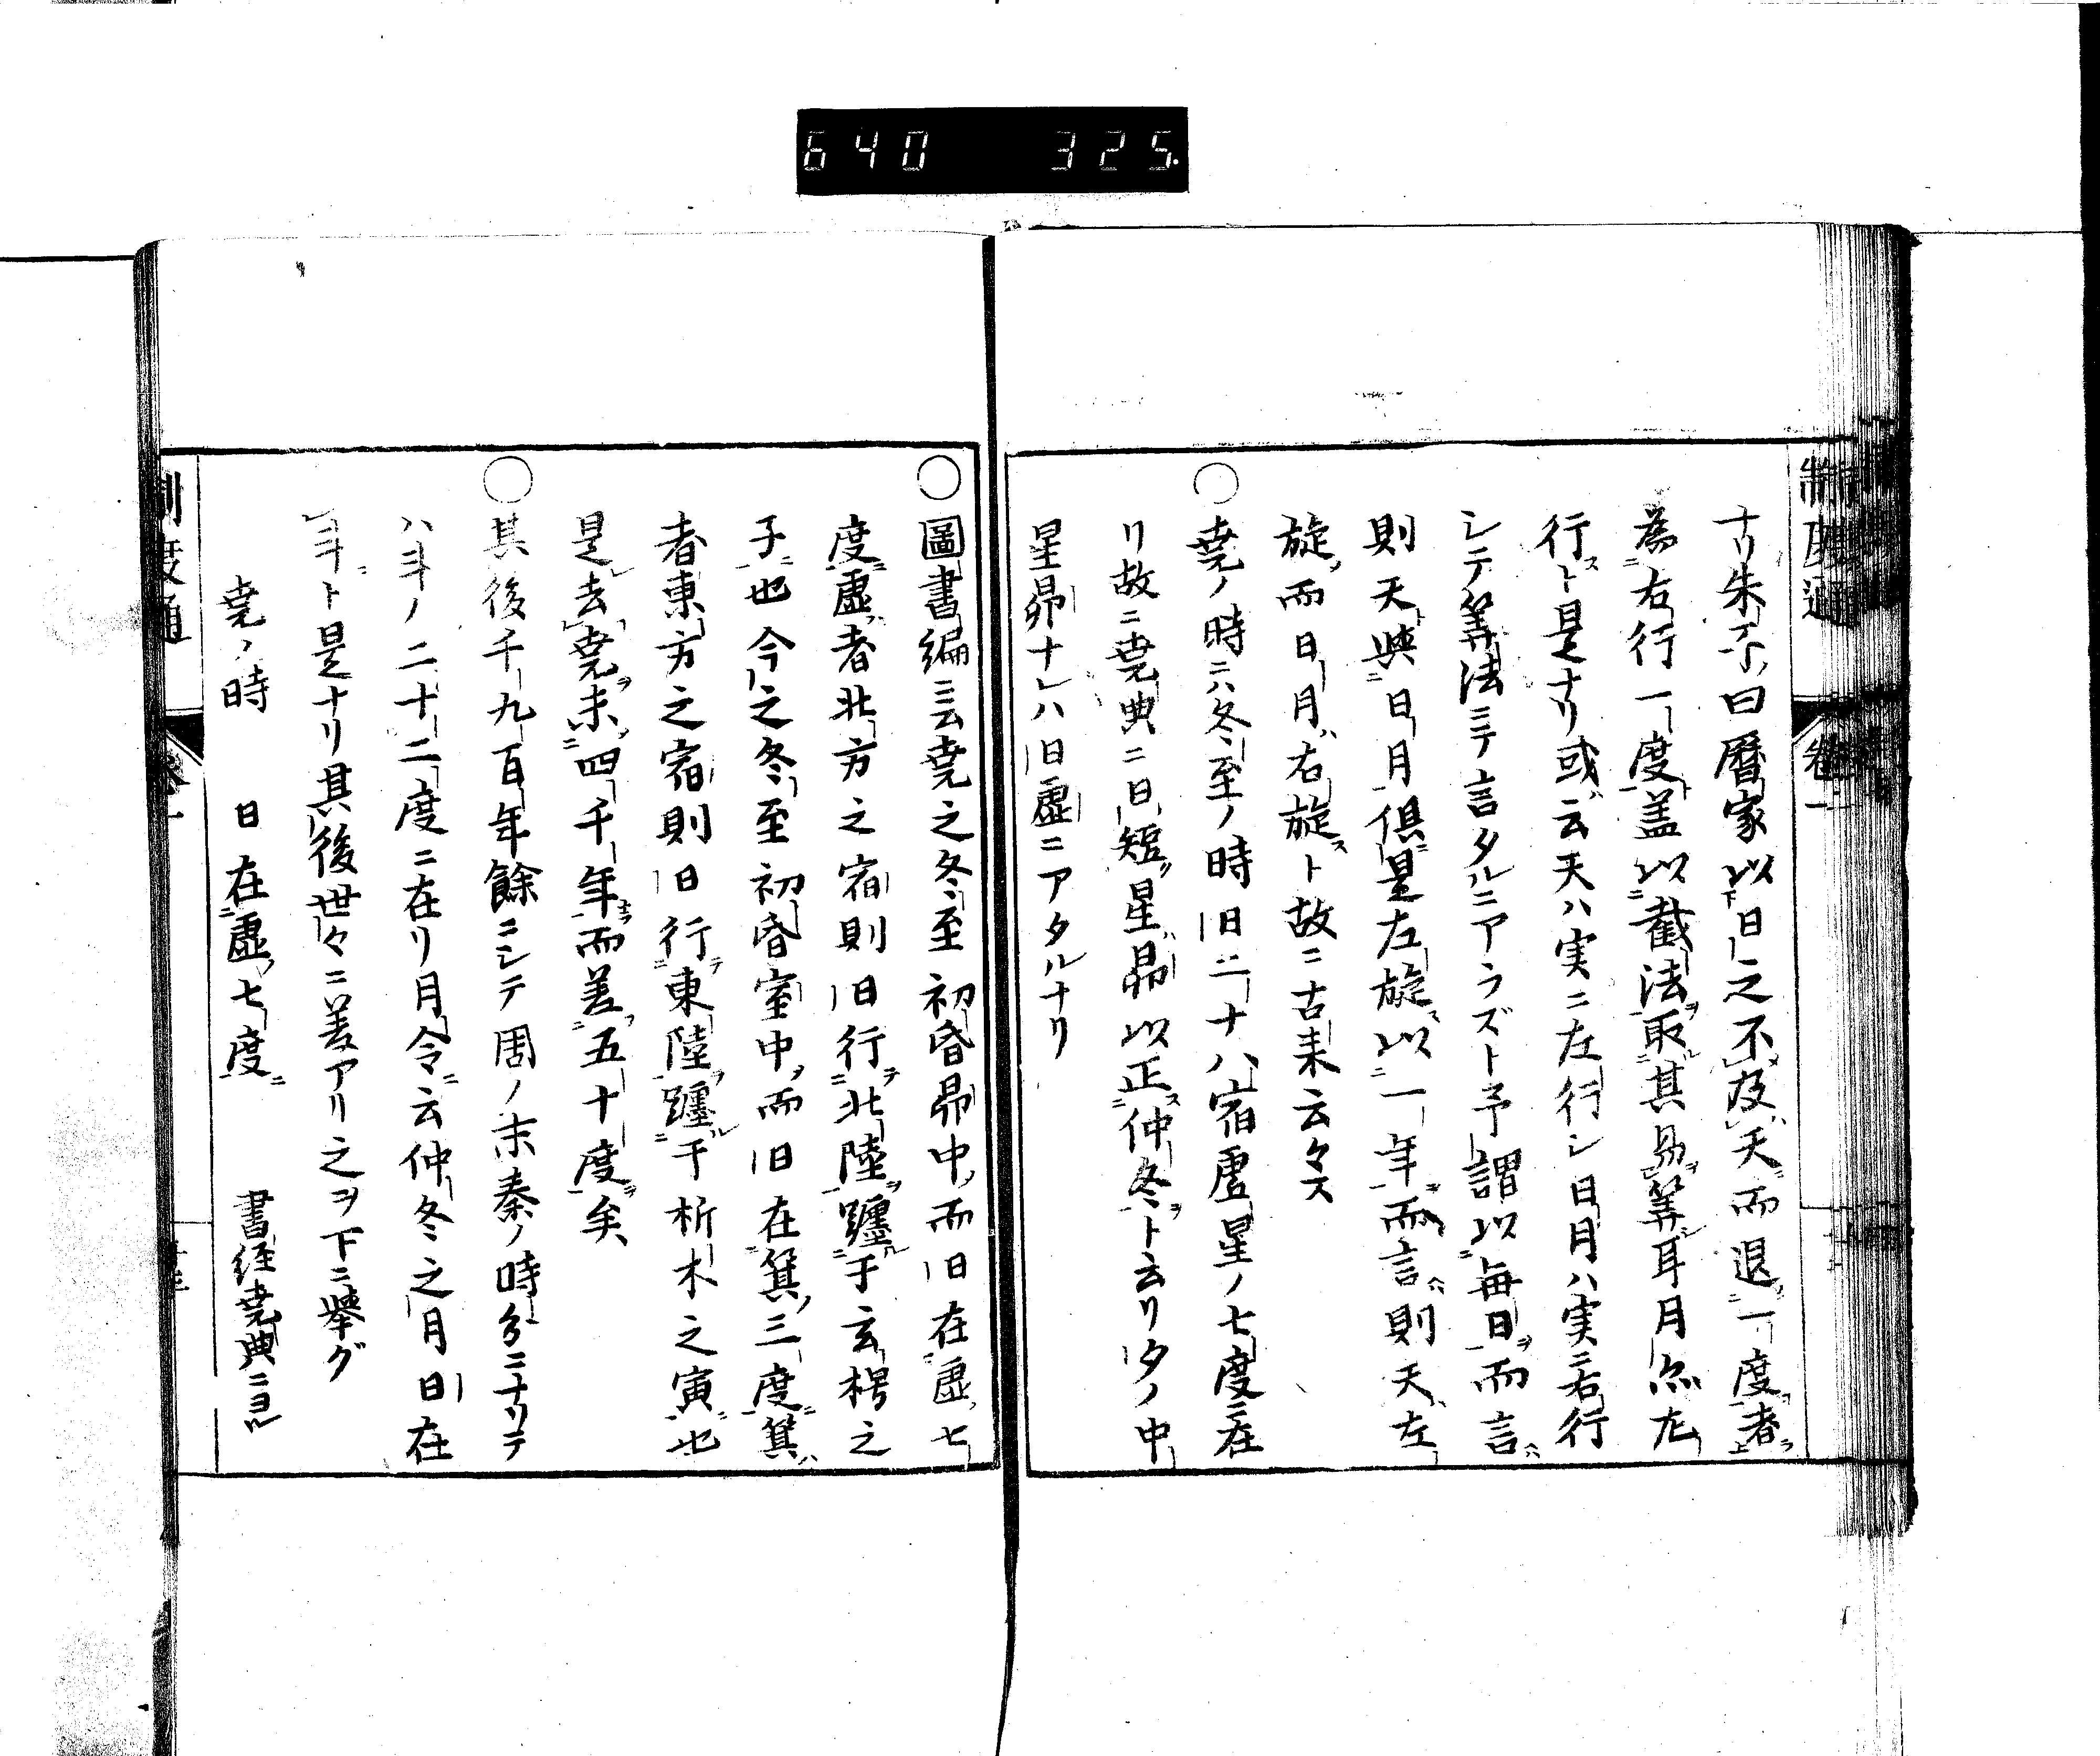 640 325.
制度通 卷一
ナリ朱子曰曆家以日之不及天而退一度者
為右行一度盖以截法取其易筭耳月亦左
行ト是ナリ或云天ハ実ニ左行シ日月ハ実ニ右行
シテ筭法ニテ言タルニアラズト予謂以毎日而言
則天與日月俱是左旋以一年而言則天左
旋而日月右旋ト故ニ古来云々ス
○堯ノ時ニハ冬至ノ時日二十八宿虚星ノ七度ニ在
リ故ニ堯典ニ日短星昴以正仲冬ト云リタノ中
星昴ナレハ日虚ニアタルナリ
○圖書編ニ云堯之冬至初昏昴中而日在虚七
度虚者北方之宿則日行北陸躔于玄枵之
子也今之冬至初昏室中而日在箕三度箕
者東方之宿則日行東陸躔于析木之寅也
是去堯未四千年而差五十度矣
○其後千九百年餘ニシテ周ノ末秦ノ時分ニナリテ
ハ斗ノ二十二度ニ在リ月令云仲冬之月日在
斗ト是ナリ其後世々ニ差アリ之ヲ下ニ舉グ
堯ノ時 日在虚七度 書経堯典ニヨル
制度通 卷一